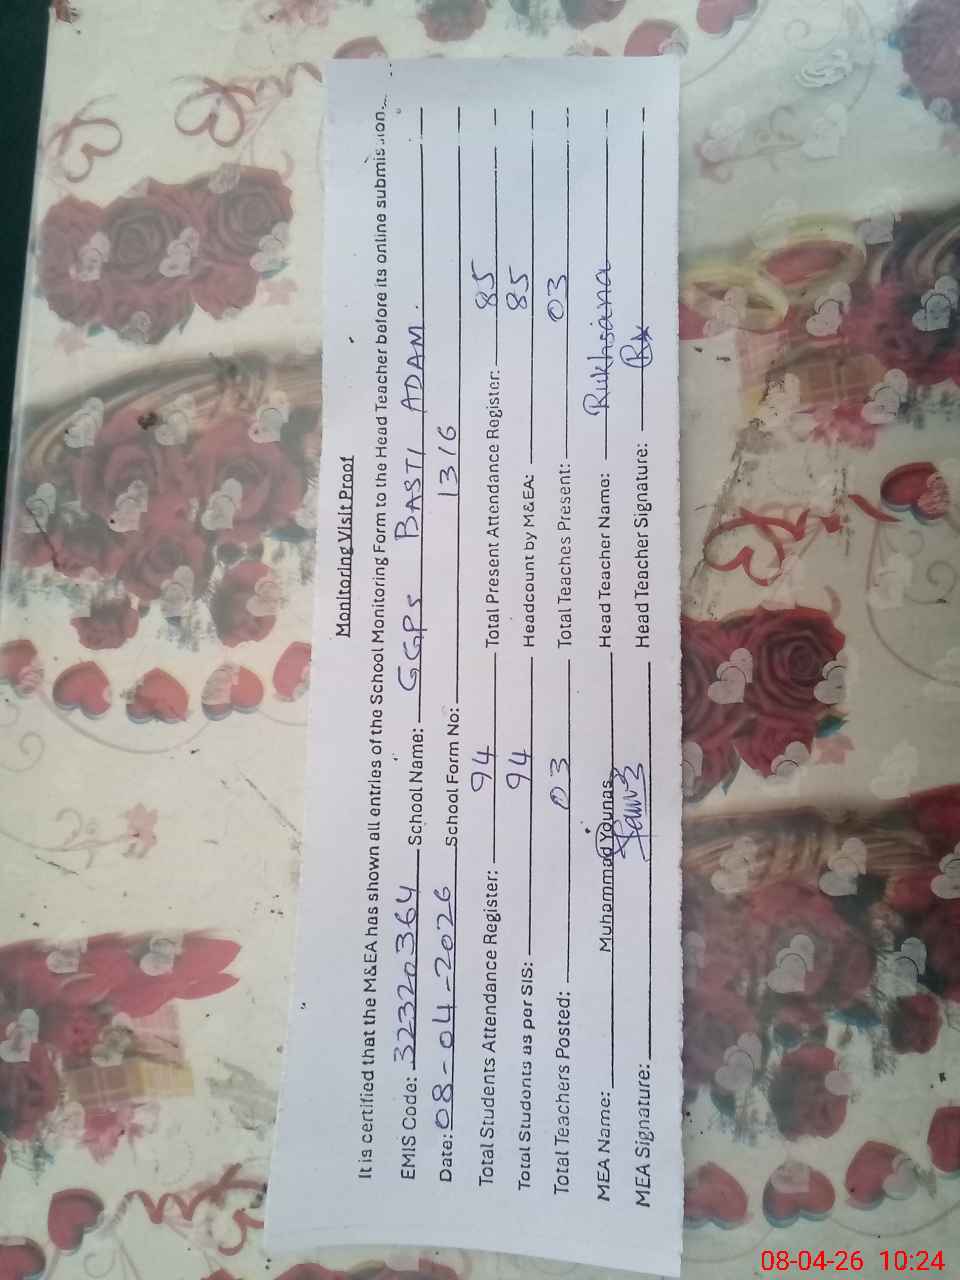 Monitoring Visit Proof
It is certified that the M&EA has shown all entries of the School Monitoring Form to the Head Teacher before its online submission.
EMIS Code: 32320364 School Name: GGPS BASTI ADAM.
Date: 08-04-2026 School Form No: 1316
Total Students Attendance Register: 94 Total Present Attendance Register: 85
Total Students as per SIS: 94 Headcount by M&EA: 85
Total Teachers Posted: 03 Total Teaches Present: 03
MEA Name: Muhammad Younas Head Teacher Name: Rukhsana
MEA Signature: Head Teacher Signature:
08-04-26 10:24